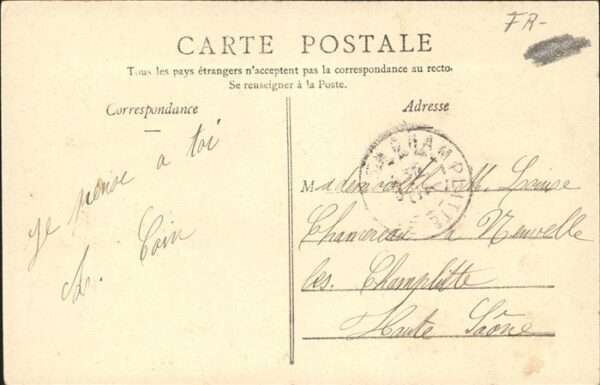 FR-
CARTE POSTALE
Tous les pays étrangers n'acceptent pas la correspondance au recto.
Se renseigner à la Poste.
Correspondance
Adresse
Je pense a toi
CHAMPLITTE
Mademoiselle M. Louise
a Neuvelle
les. Champlitte
Haute Saône